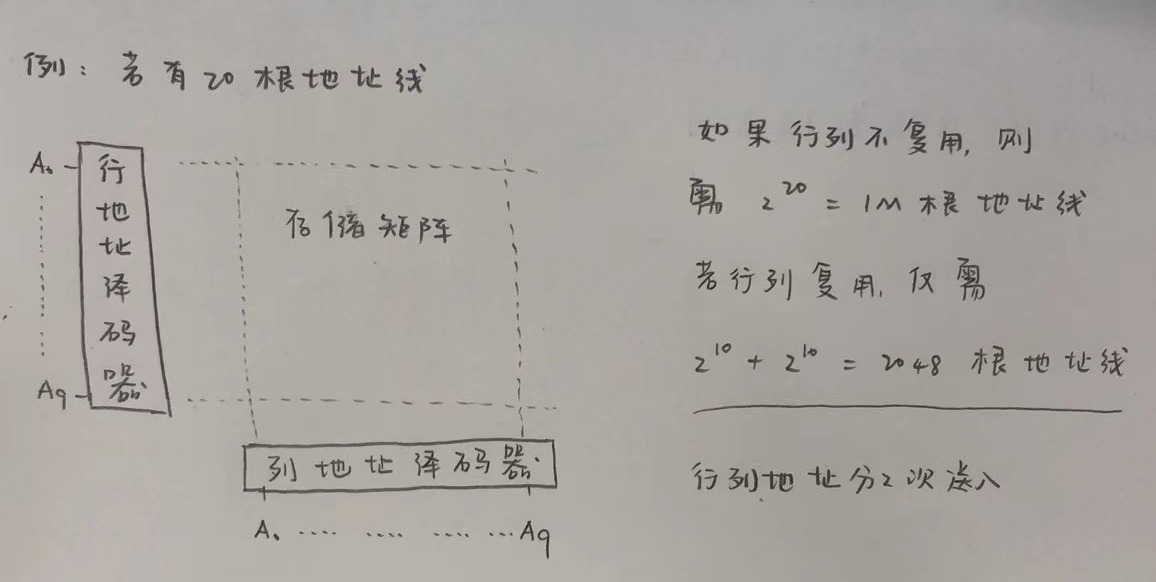 例：若有20根地址线
A₀
行地址译码器
A9
存储矩阵
列地址译码器
A₀ ···· ···· ···· ··· A9
如果行列不复用，则
需 2²⁰ = 1M 根地址线
若行列复用，仅需
2¹⁰ + 2¹⁰ = 2048 根地址线
行列地址分2次送入